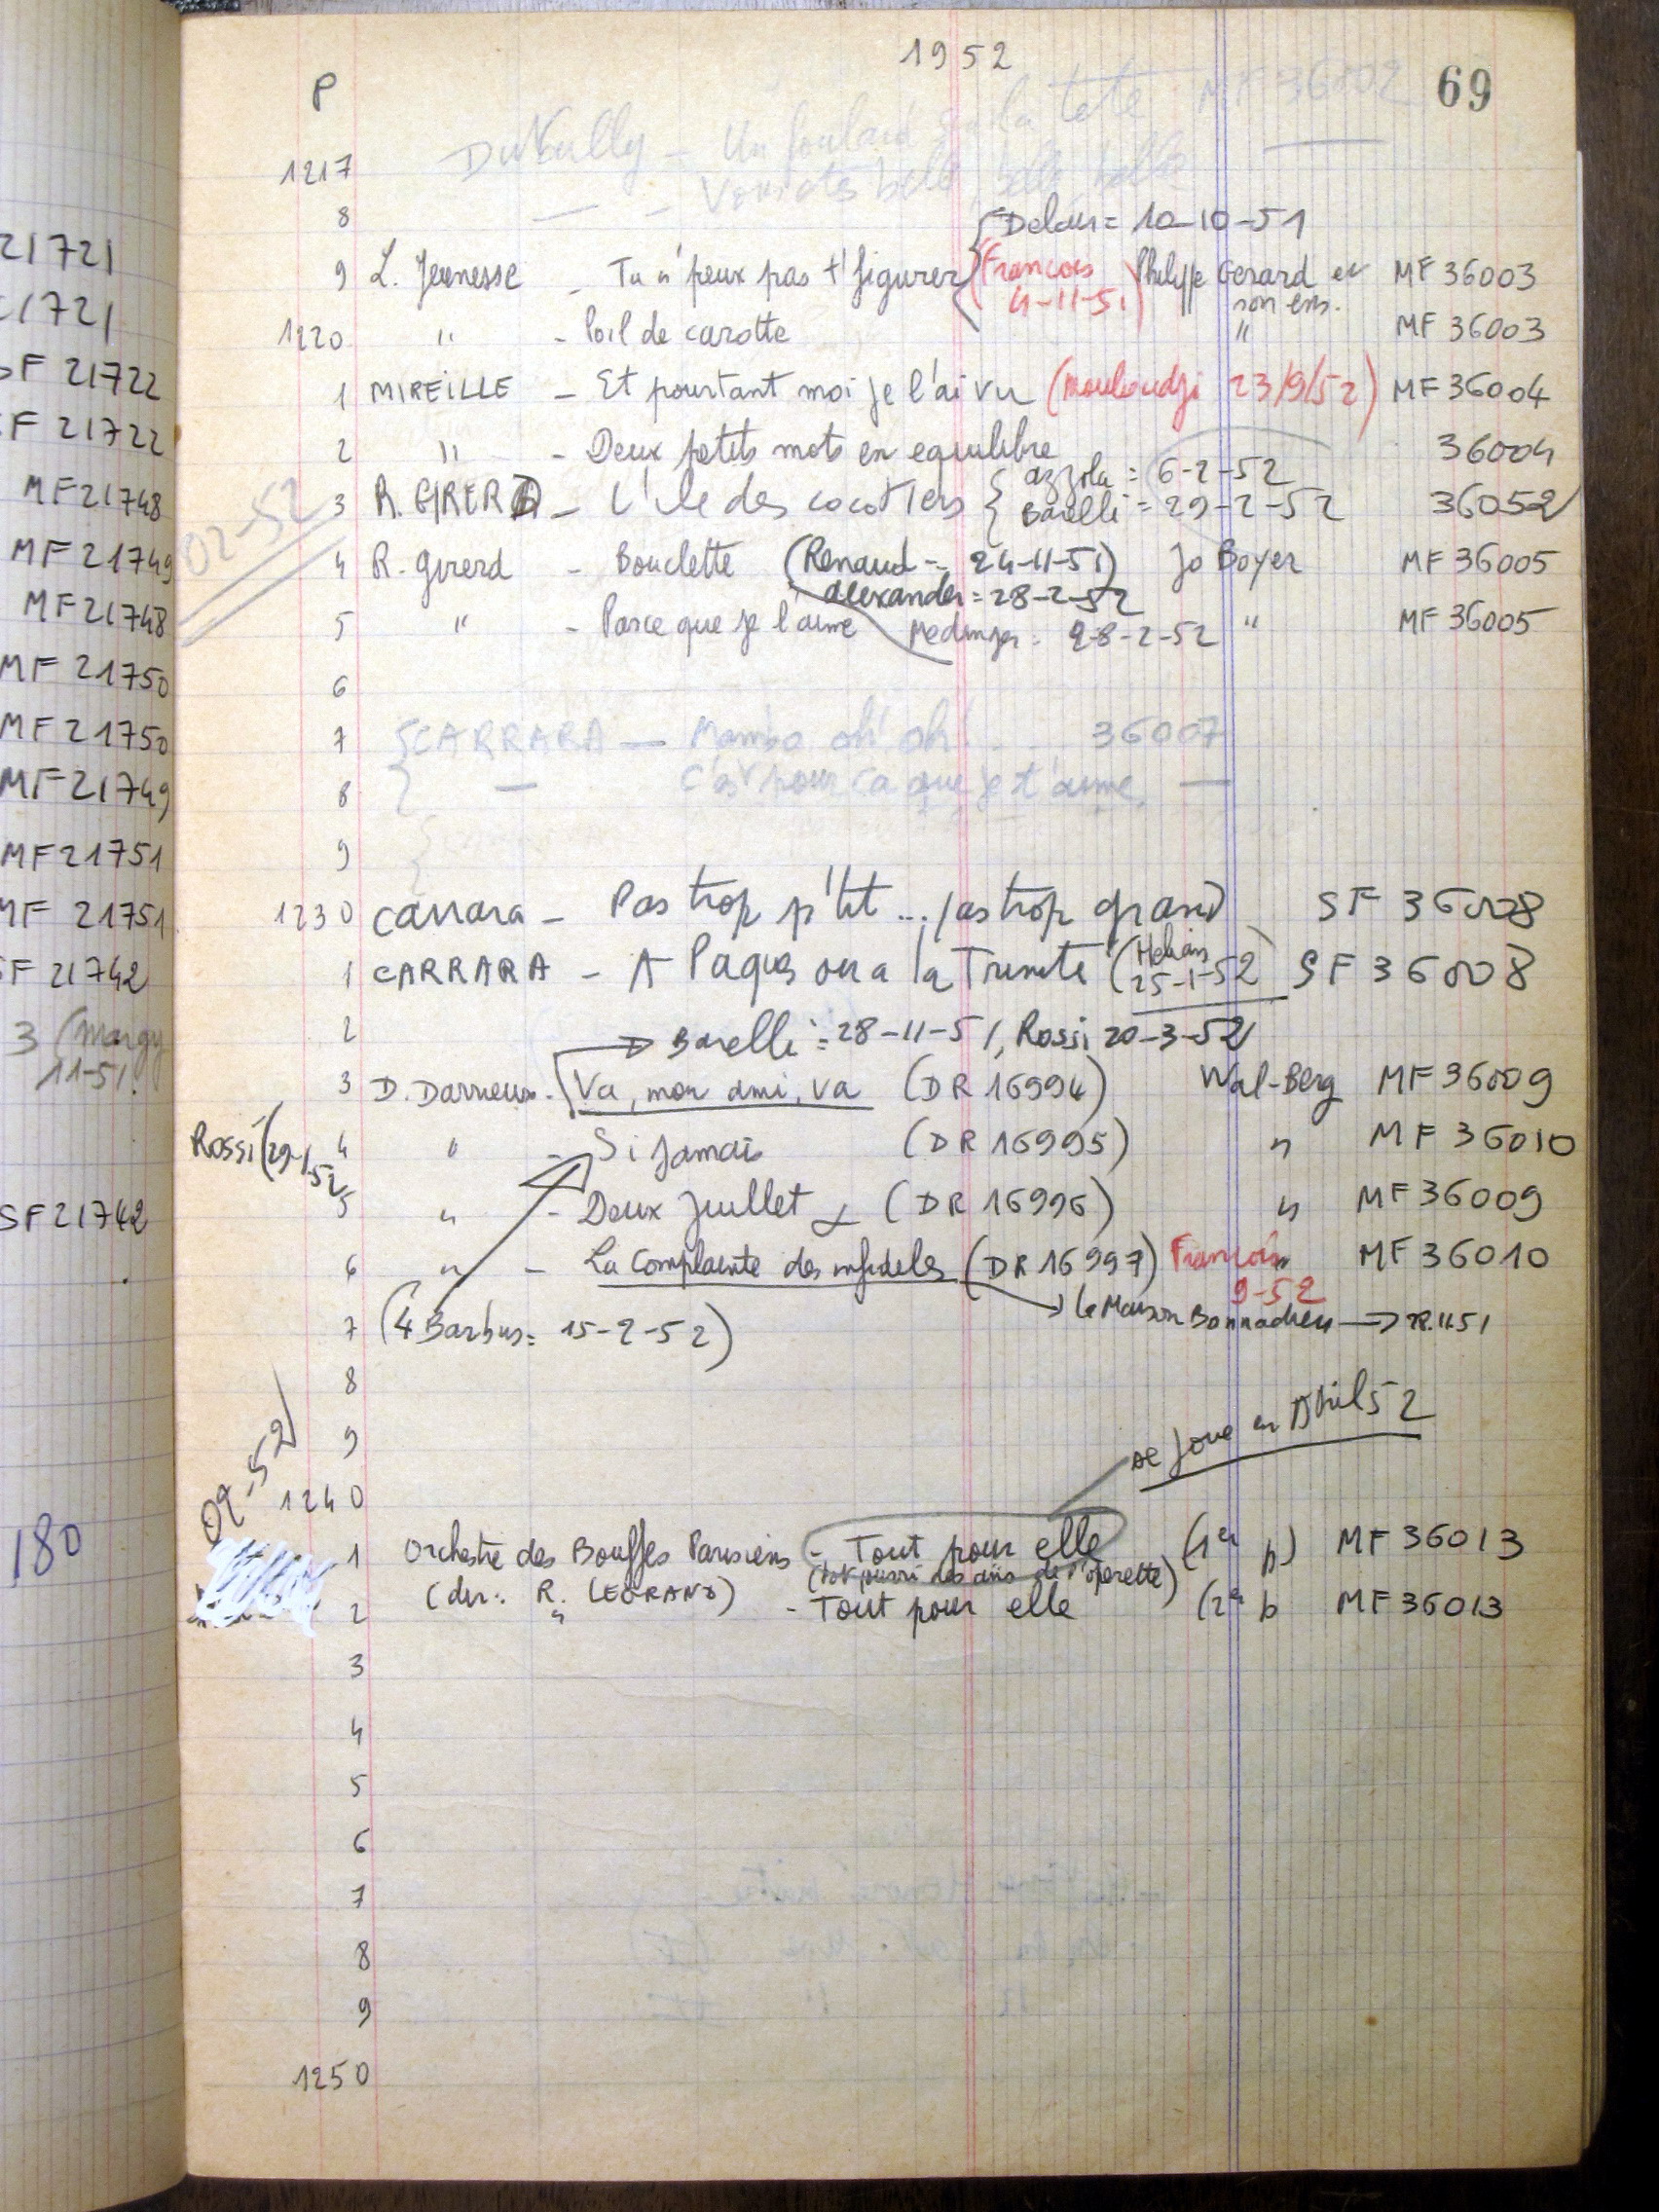 1952
69
P
1217 DuNully - Un foulard sur la tête MF 36002
8 — - Vous êtes belle, belle, belle
Delair = 10-10-51
9 L. Jeunesse - Tu n'peux pas t'figurer (Francois 4-11-51) Philippe Gerard et son ens. MF 36003
1220 " - Poil de carotte " MF 36003
1 MIREILLE - Et pourtant moi je l'ai vu (Mouloudji 23/9/52) MF 36004
2 " - Deux petits mots en equilibre 36004
3 R. GIRERD - L'île des cocotiers { azzola = 6-2-52
Barelli = 29-2-52 36052
02-52
4 R. Girerd - Bouclette (Renaud = 24-11-51) Jo Boyer MF 36005
alexander = 28-2-52
5 " - Parce que je l'aime Medinger = 28-2-52 " MF 36005
6
7 CARRARA — Mambo oh! oh! 36007
8 — C'est pour ca que je t'aime —
9
1230 Carrara - Pas trop p'tit... pas trop grand SF 36008
1 CARRARA - A Paques ou a la Trinité (Helian 25-1-52) SF 36008
2 → Barelli = 28-11-51, Rossi 20-3-52
3 D. Darrieux - Va, mon ami, va (DR 16994) Wal-Berg MF 36009
Rossi (29-1-52)
4 " - Si jamais (DR 16995) " MF 36010
5 " - Deux Juillet (DR 16996) " MF 36009
6 " - La Complainte des infideles (DR 16997) Francois 9-52 " MF 36010
→ La Maison Bonnadieu → 28.11.51
7 (4 Barbus = 15-2-52)
8
9
se joue en Avril 52
02-52
1240
1 Orchestre des Bouffes Parisiens - Tout pour elle (1er p) MF 36013
(pot pourri des airs de l'operette)
(dir. R. LEGRAND)
2 " - Tout pour elle (2e p MF 36013
3
4
5
6
7
8
9
1250
21721
21721
SF 21722
F 21722
MF 21748
MF 21749
MF 21748
MF 21750
MF 21750
MF 21749
MF 21751
MF 21751
SF 21742
3 (Margy
11-51)
SF 21742
180